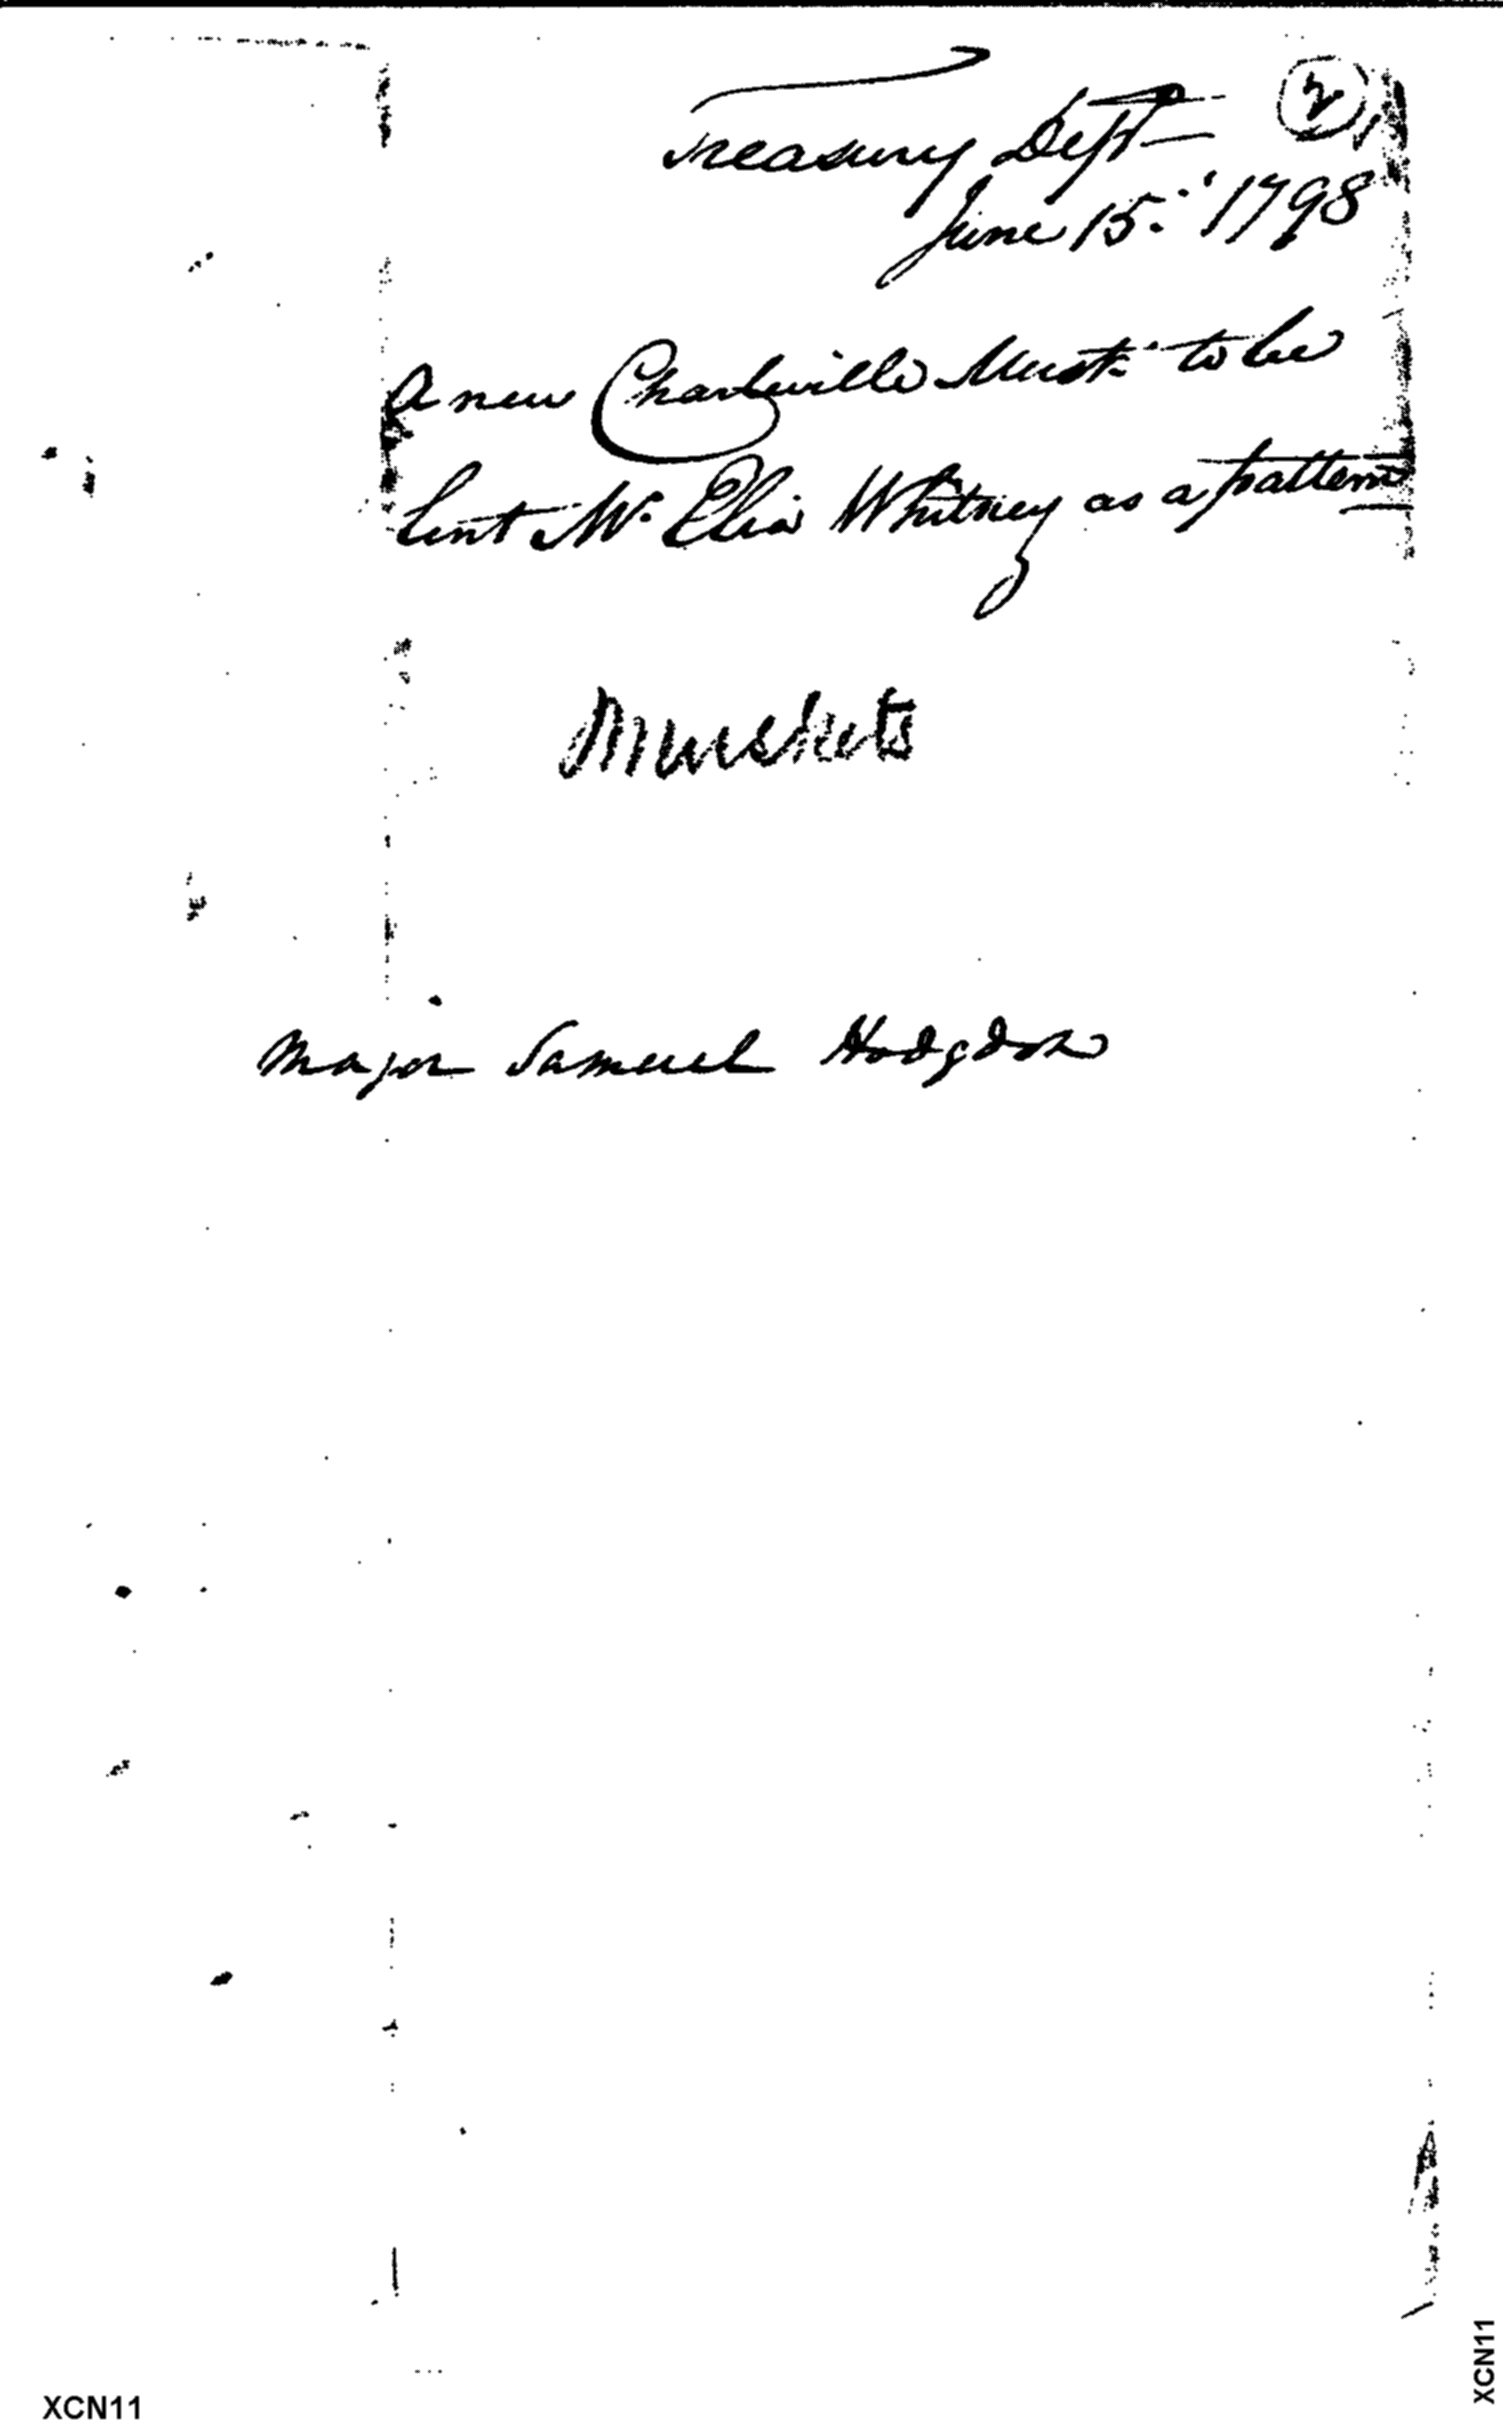 2
Treasury Dept
June 15: 1798
A new Charleville Musk: to be
lent Mr. Elia Whitney as a pattern
Muskets
Major Samuel Hodgdon
XCN11
XCN11